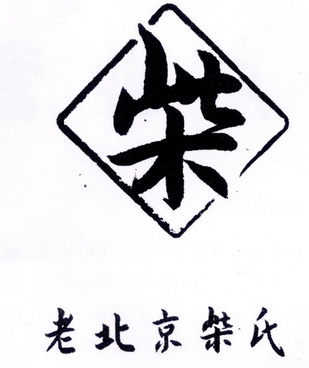 柴
老北京柴氏